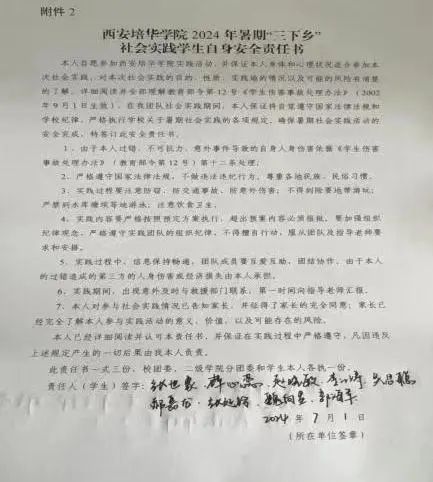 附件 2
西安培华学院 2024 年暑期“三下乡”
社会实践学生自身安全责任书
本人自愿参加西安培华学院实践活动，并保证本人身体和心理状况适合参加本
次社会实践，对本次社会实践的目的、性质、实践地的情况以及可能的风险有清楚
的了解，详细阅读并全部理解教育部第 12 号《学生伤害事故处理办法》（2002
年 9 月 1 日生效）。在我团队社会实践期间，本人保证将自觉遵守国家法律法规和
学校纪律，严格执行学校关于暑期社会实践的各项规定，确保暑期社会实践活动的
安全完成，特签订此安全责任书。
1、由于本人过错、不可抗力、意外事件导致的自身人身伤害依据《学生伤害
事故处理办法》（教育部令第 12 号）第十二条处理；
2、严格遵守国家法律法规，不做违法违纪行为，尊重各地民族、民俗习惯。
3、实践过程要注意防窃、防交通事故、防意外伤害；不得到险要地带游玩；
严禁到水库塘坝等地游泳；注意饮食卫生。
4、实践内容要严格按照预定方案执行，超出预案内容必须报批，要加强组织
纪律观念，严格遵守实践团队的组织纪律，不得擅自行动，服从团队及指导老师要求
和安排。
5、实践过程中，信息保持畅通，团队成员要互爱互助，团结协作，由于本人
的过错造成的第三方的人身伤害或经济损失由本人承担。
6、实践期间，出现意外及时与救援部门联系，第一时间向指导老师汇报。
7、本人对参与社会实践情况已告知家长，并征得了家长的完全同意；家长已
经完全了解本人参与实践活动的意义、价值，以及可能存在的风险。
本人已经详细阅读并认可本责任书，并保证在实践过程中严格遵守，凡因违反
上述规定产生的一切后果由我本人负责。
此责任书一式三份，校团委、二级学院分团委和学生本人各执一份。
责任人（学生）签字：
2024 年 7 月 1 日
（所在单位签章）